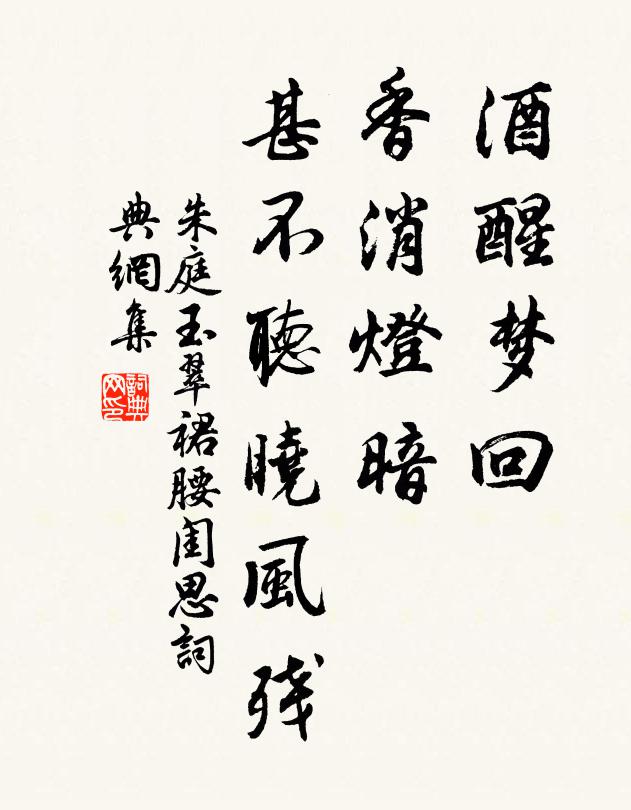 酒醒梦回
香消燈暗
甚不聽曉風殘
朱庭玉翠裙腰闺思詞
典網集
詞典网印